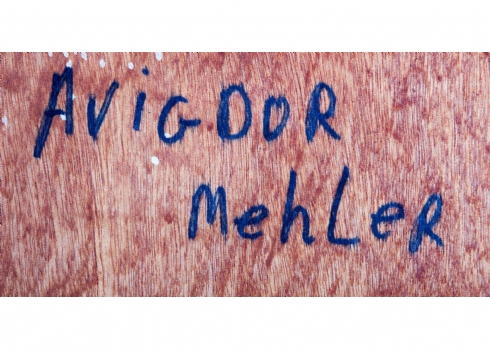 AViGDOR
MehLeR